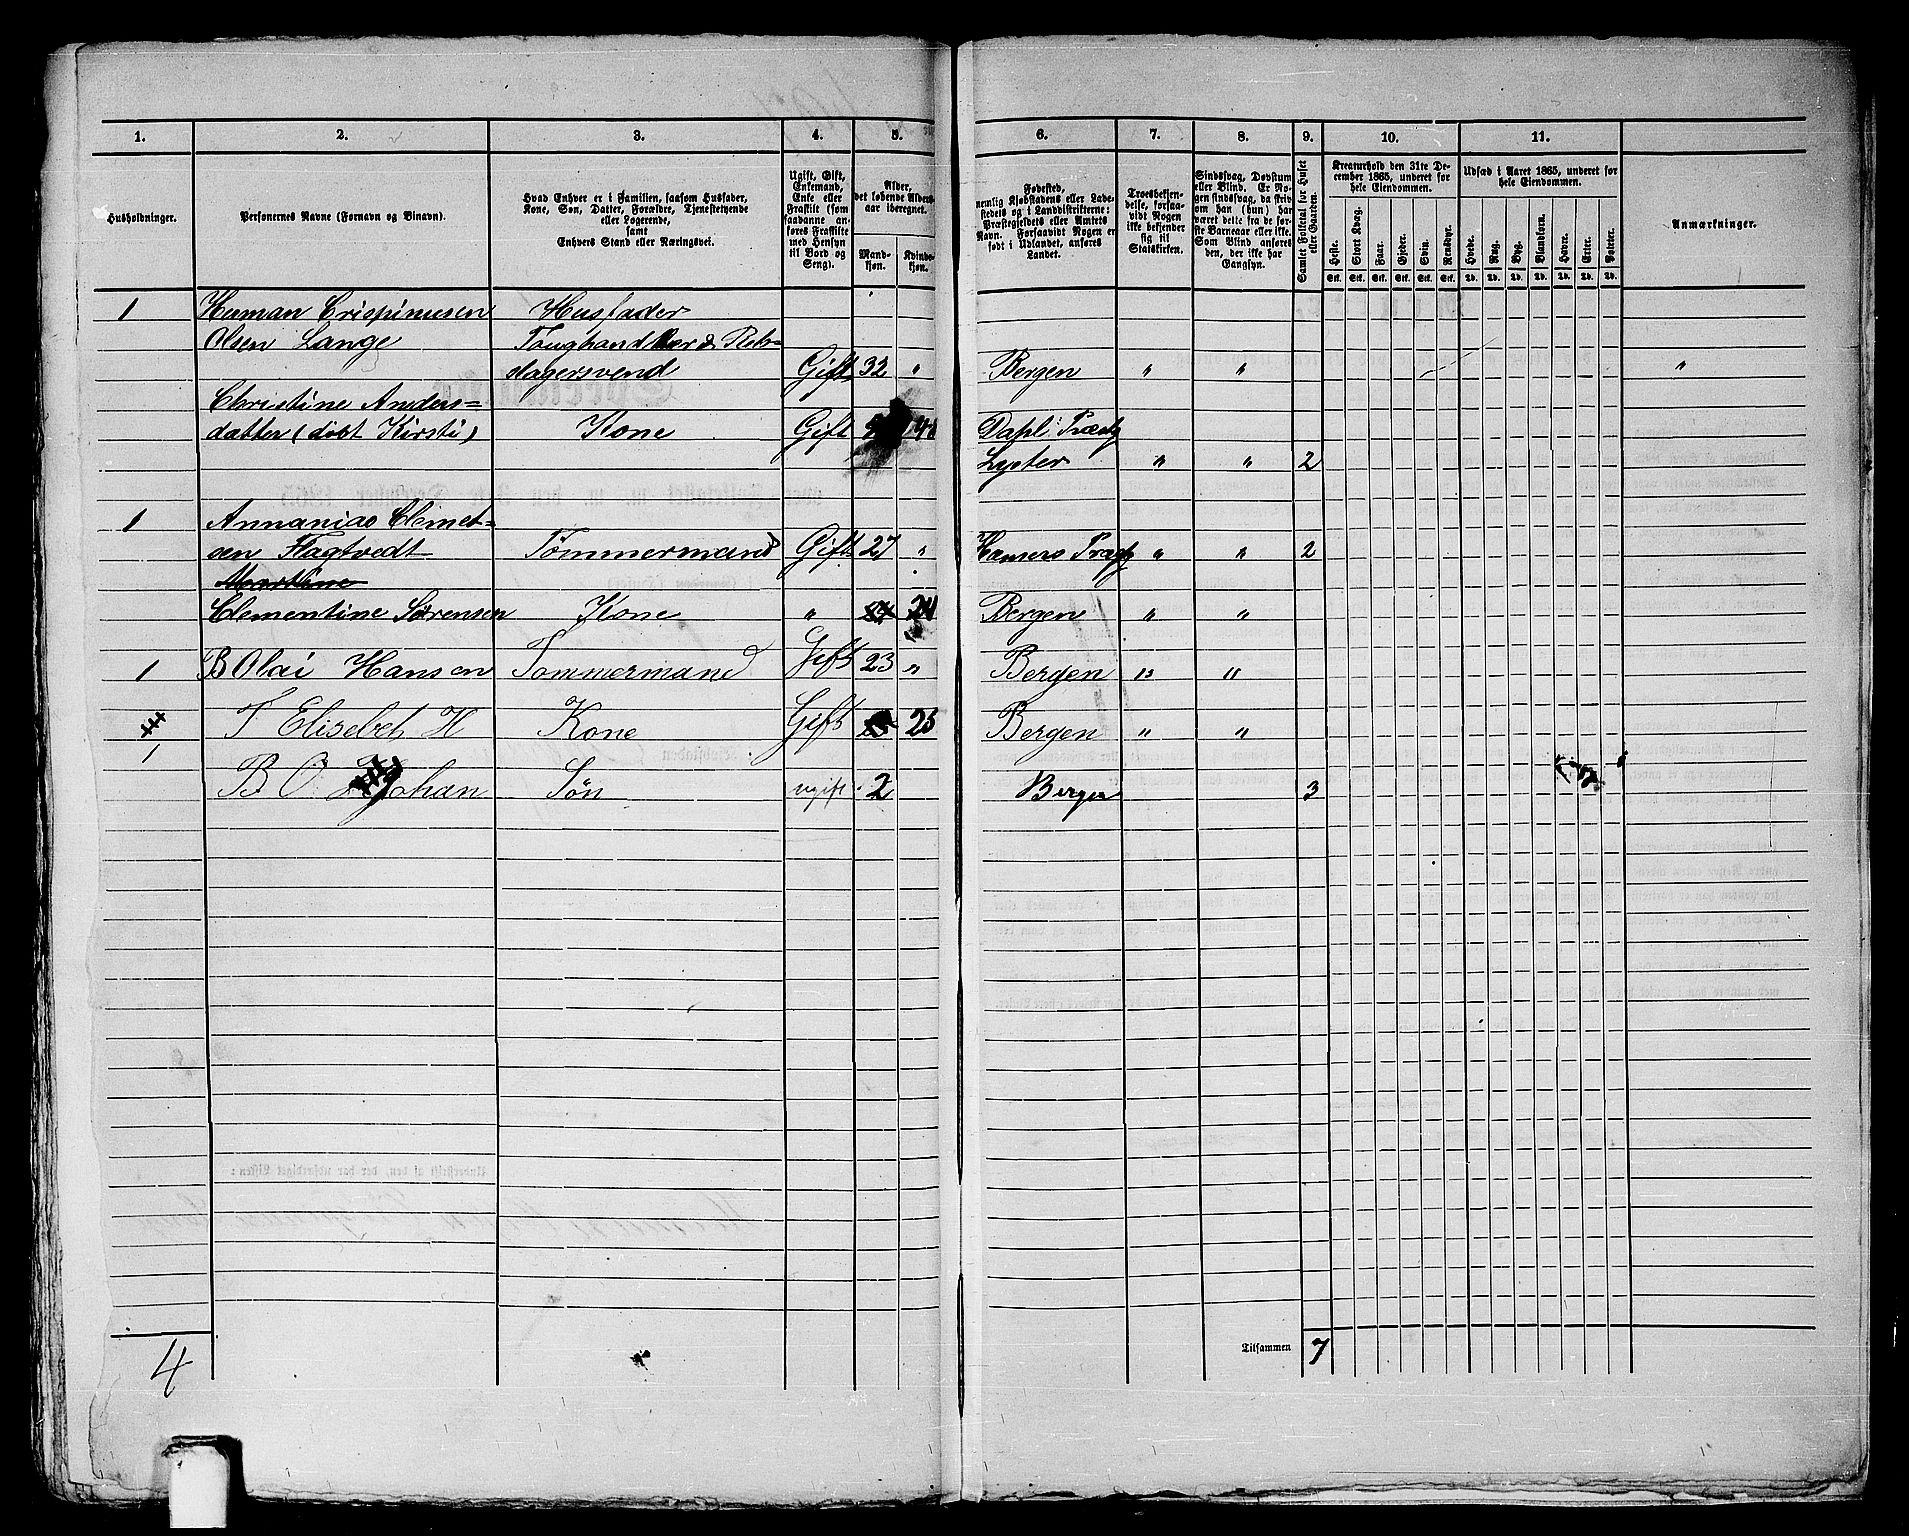 1. 2. 3. 4. 5. 6. 7. 8. 9. 10. 11.
Husholdninger.
Personernes Navne (Fornavn og Binavn).
Hvad Enhver er i Familien, saasom Husfader,
Kone, Søn, Datter, Forældre, Tjenestetyende
eller Logerende,
samt
Enhvers Stand eller Næringsvei.
Ugift, Gift,
Enkemand,
Enke eller
Fraskilt (som
saadanne an-
føres Fraskilte
med Hensyn
til Bord og
Seng).
Alder,
det løbende Alders-
aar iberegnet.
Mand-
kjøn.
Kvinde-
kjøn.
Fødested,
nemlig Kjøbstadens eller Lade-
stedets og i Landdistrikterne:
Præstegjeldets eller Amtets
Navn. Forsaavidt Nogen er
født i Udlandet, anføres
Landet.
Troesbekjen-
delse, forsaa-
vidt Nogen
ikke bekjender
sig til
Statskirken.
Sindssvag, Døvstum
eller Blind. Er No-
gen sindssvag, da skriv
om han (hun) har
været dette fra de før-
ste Barneaar eller ikke.
Som Blind anføres
den, der ikke har
Gangsyn.
Samlet Folketal for Huset
eller Gaarden.
Kreaturhold den 31te De-
cember 1865, underet for
hele Eiendommen.
Heste. Stort Kvæg. Faar. Gjeder. Svin. Rensdyr.
Stk. Stk. Stk. Stk. Stk. Stk.
Udsæd i Aaret 1865, underet for
hele Eiendommen.
Hvede. Rug. Byg. Blandkorn. Havre. Erter. Poteter.
Td. Td. Td. Td. Td. Td. Td.
Anmærkninger.
1 Herman Crispinusen Husfader
Olsen Lange
slagersvend Gift 32 " Bergen " " "
Christine Anders=
datter (døbt Kirsti) Kone Gift 48
Lyster " " 2
1 Annanias Clemet-
sen Flagtvedt Tømmermand Gift 27 " " " 2
Martine
Clementine Sørensen Kone " 24 Bergen " "
1 B Olai Hansen Tommermand Gift 23 " Bergen " "
T Elisebet H Kone Gift 25 Bergen " "
1
B. O. Johan Søn ugift 2 Bergen 3
4 Tilsammen 7